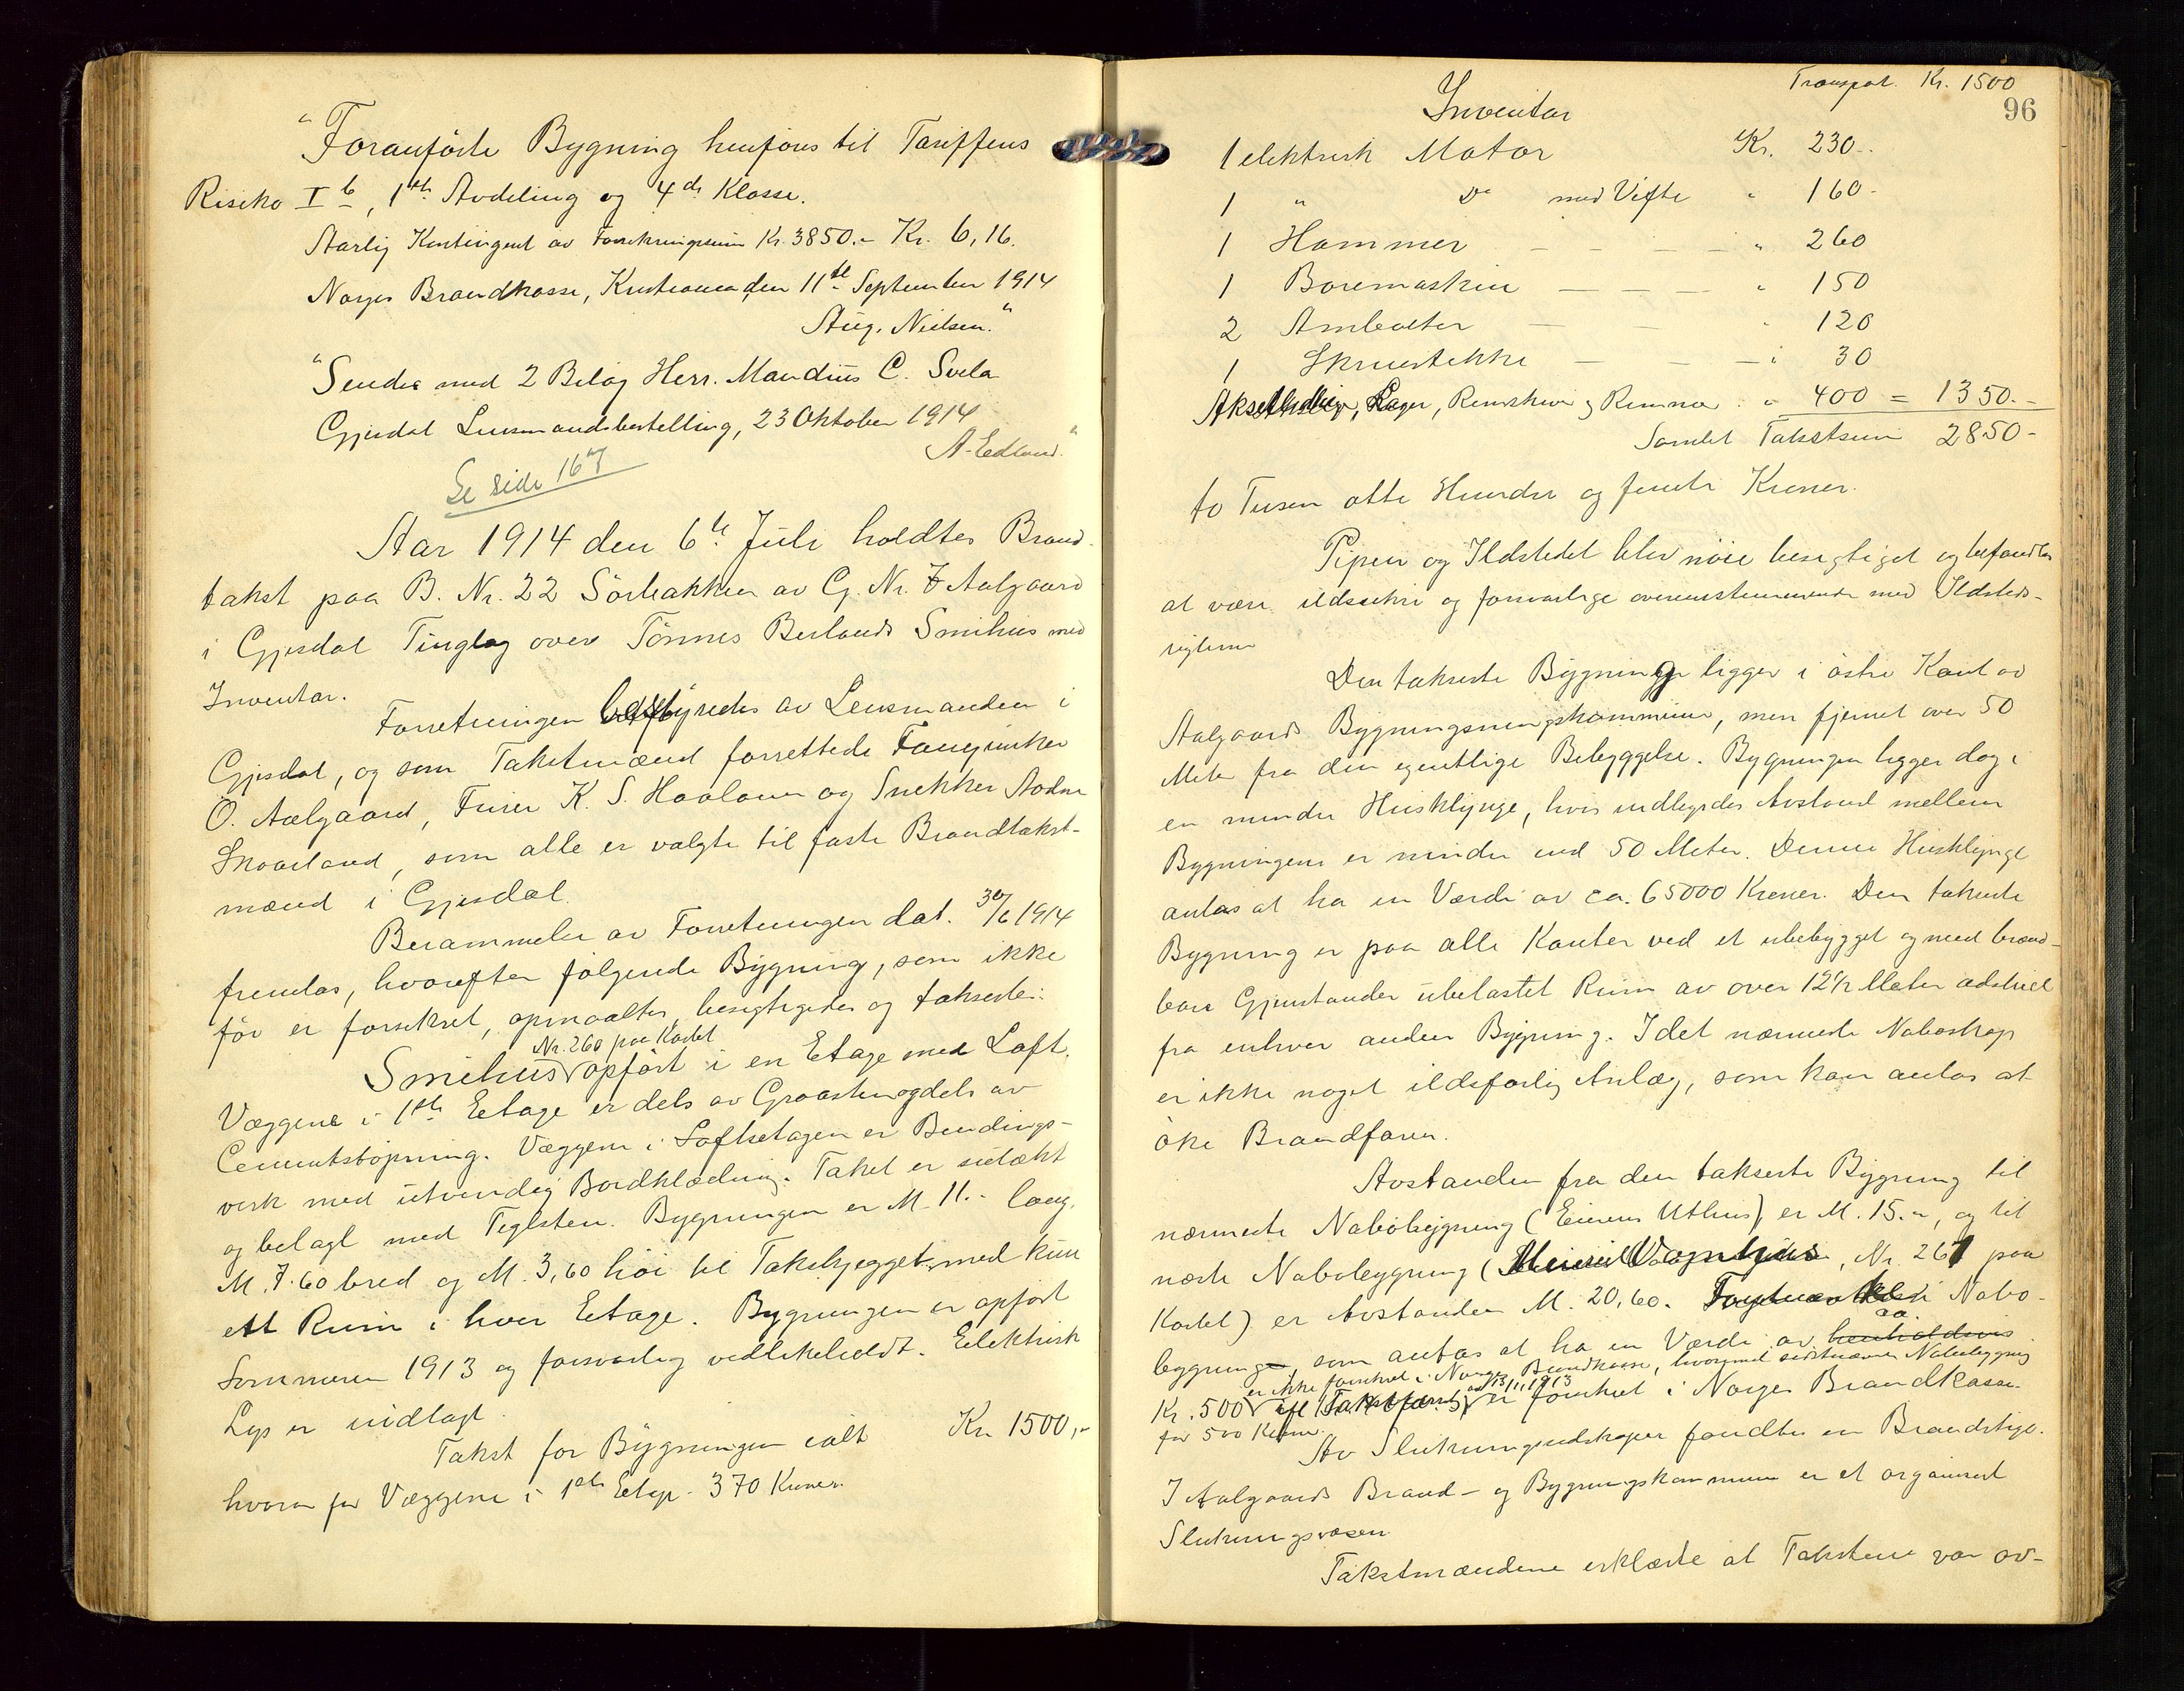 "Foranförte Bygning henföres til Tariffens
Risiko I b, 1ste Avdeling og 4de Klasse.
Aarlig Kontingent av Forsikringssum Kr. 3850.- Kr. 6,16.
Norges Brandkasse, Kristiania den 11te September 1914
Aug. Nielsen."
"Sendes med 2 Bilag Herr. Maudius C. Svela
Gjesdal Lensmandsbestilling, 23 Oktober 1914
A. Edland."
Se side 167
Aar 1914 den 6te Juli holdtes Brand-
takst paa B. Nr. 22 Sörbakken av G. Nr. 7 Aalgaard
i Gjesdal Tinglag over Tönnes Berlands Smihus med
Inventar.
Forretningen bestyredes av Lensmanden i
Gjesdal, og som Takstmænd forrettede
O. Aalgaard, K. S. Haaland og Snekker Aadne
Skaarland, som alle er valgte til faste Brandtakst-
mænd i Gjesdal.
Berammelse av Forretningen dat. 30/6 1914
fremlas, hvorefter fölgende Bygning, som ikke
för er forsikret, opmaaltes, besigtigedes og takserte:
Nr. 260 paa Kartet
Smihus opfört i en Etage med Loft.
Væggene i 1ste Etage er dels av Graasten og dels av
Cementstöpning. Væggene i Loftsetagen er Bindings-
verk med utvendig Bordklædning. Taket er sutækt
og belagt med Teglsten. Bygningen er M. 11.- lang,
M. 7.60 bred og M. 3,60 höi til Takskjegget med kun
ett Rum i hver Etage. Bygningen er opfört
Sommeren 1913 og forsvarlig vedlikeholdt. Elektrisk
Lys er indlagt.
Takst for Bygningen ialt Kr. 1500,-
hvorav for Væggene i 1ste Etage - 370 Kroner.
Transport. Kr. 1500
96
Inventar
1 elektrisk Motor Kr. 230.-
1 " Do med Vifte " 160-
1 Hammer - - - - " 260
1 Boremaskin - - - " 150
2 Ambolter - - " 120
1 Skruestikke - - - " 30
Akselledning, Lager, Remskiver og Remmer " 400 = 1350.-
Samlet Takstsum 2850-
to Tusen otte Hundre og femti Kroner.
Pipen og Ildstedet blev nöie besigtiget og befandtes
at være ildssikre og forsvarlige overensstemmende med Ildsteds-
reglerne
Den takserte Bygning ligger i östre Kant av
Aalgaards Bygningskommune, men fjernet over 50
Meter fra den egentlige Bebyggelse. Bygningen ligger dog i
en mindre Husklynge, hvis indbyrdes Avstand mellem
Bygningene er mindre end 50 Meter. Denne Husklynge
antas at ha en Værdi av ca. 65000 Kroner. Den takserte
Bygning er paa alle Kanter ved et ubebygget og med brænd-
bare Gjenstander ubelastet Rum av over 12½ Meter adskilt
fra enhver anden Bygning. I det nærmeste Naboskap
er ikke noget ildsfarlig Anlæg, som kan antas at
öke Brandfaren.
Avstanden fra den takserte Bygning til
nærmeste Nabobygning (Eierens Uthus) er M. 15.-, og til
næste Nabobygning ( Vognhus, Nr. 261 paa
Kartet) er Avstanden M. 20,60. Nabo-
bygning, som antas at ha en Værdi av henholdsvis
er ikke forsikret i Norges Brandkasse, hvorimod sidstnævnte Nabobygning
Kr. 500 av 13/11 1913 er forsikret i Norges Brandkasse
for 500 Kroner.
Av Slukningsredskaper fandtes en Brandstige.
I Aalgaards Brand- og Bygningskommune er et organisert
Slukningsvæsen
Takstmændene erklærte at Taksten var av-